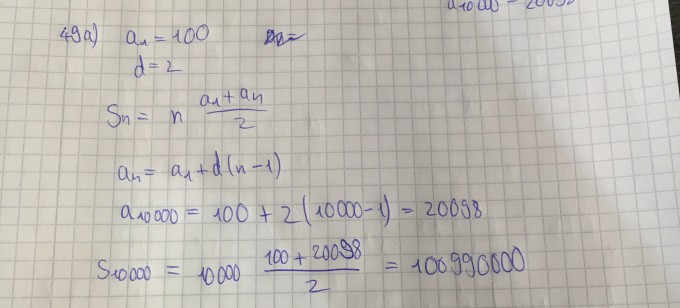 a10000 = 20098
49a) a₁ = 100
d = 2
Sn = n (a₁ + an)/2
an = a₁ + d(n-1)
a10000 = 100 + 2(10000-1) = 20098
S10000 = 10000 (100 + 20098)/2 = 100990000